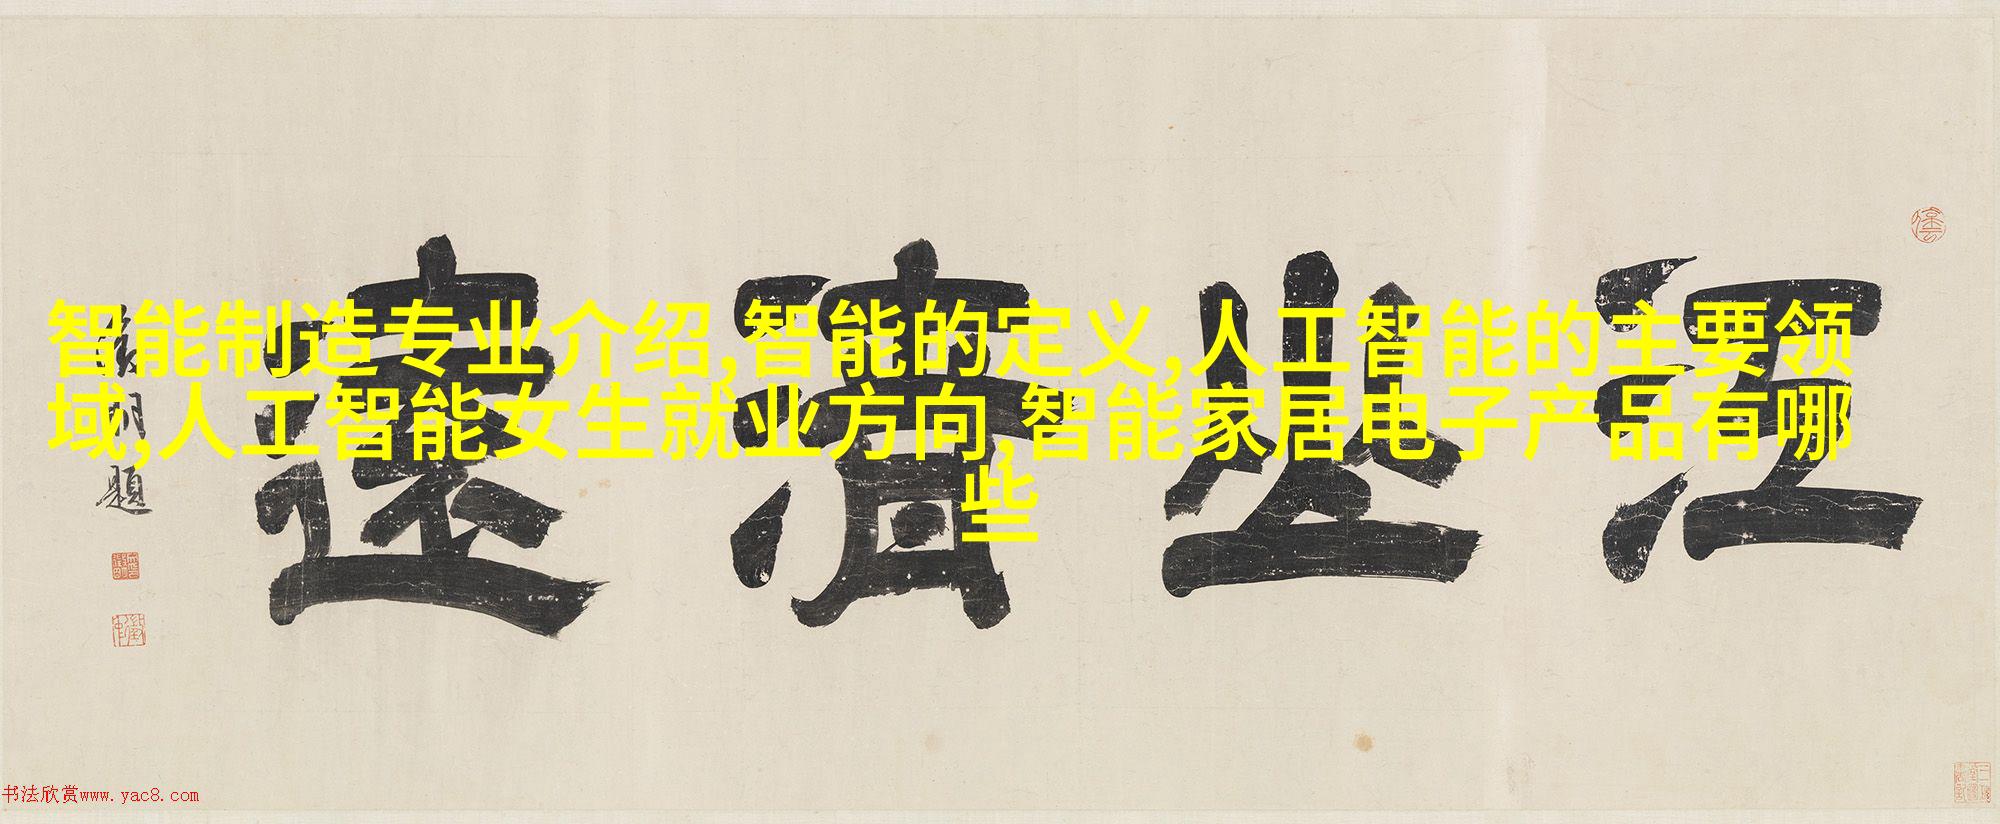 智能制造专业介绍,智能的定义,人工智能的主要领
域,人工智能女生就业方向,智能家居电子产品有哪
些
江山清遠
題
书法欣赏www.yac8.com